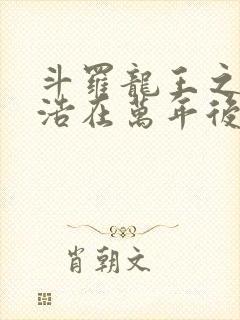 斗羅龍王之
浩在萬年後
肖朝文